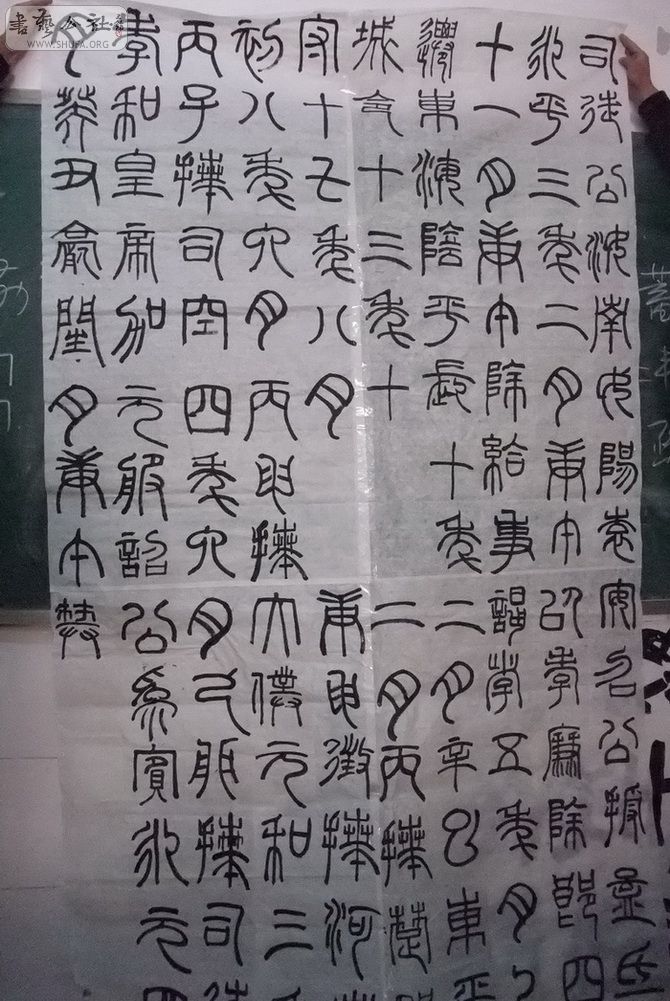 書藝公社
WWW.SHUFA.ORG
司徒公汝南女陽袁安召公授孟氏
永平三年二月庚午以孝廉除郎四
十一月庚午除給事謁者五年月
遷東海陰平長十年二月辛巳東平
城令十三年十二月丙拜楚
守十五年八月庚申徵拜河
初八年六月丙申拜太僕元和三年
丙子拜司空四年六月己卯拜司徒
孝和皇帝加元服詔公為賓永元四
癸丑薨閏月庚午葬